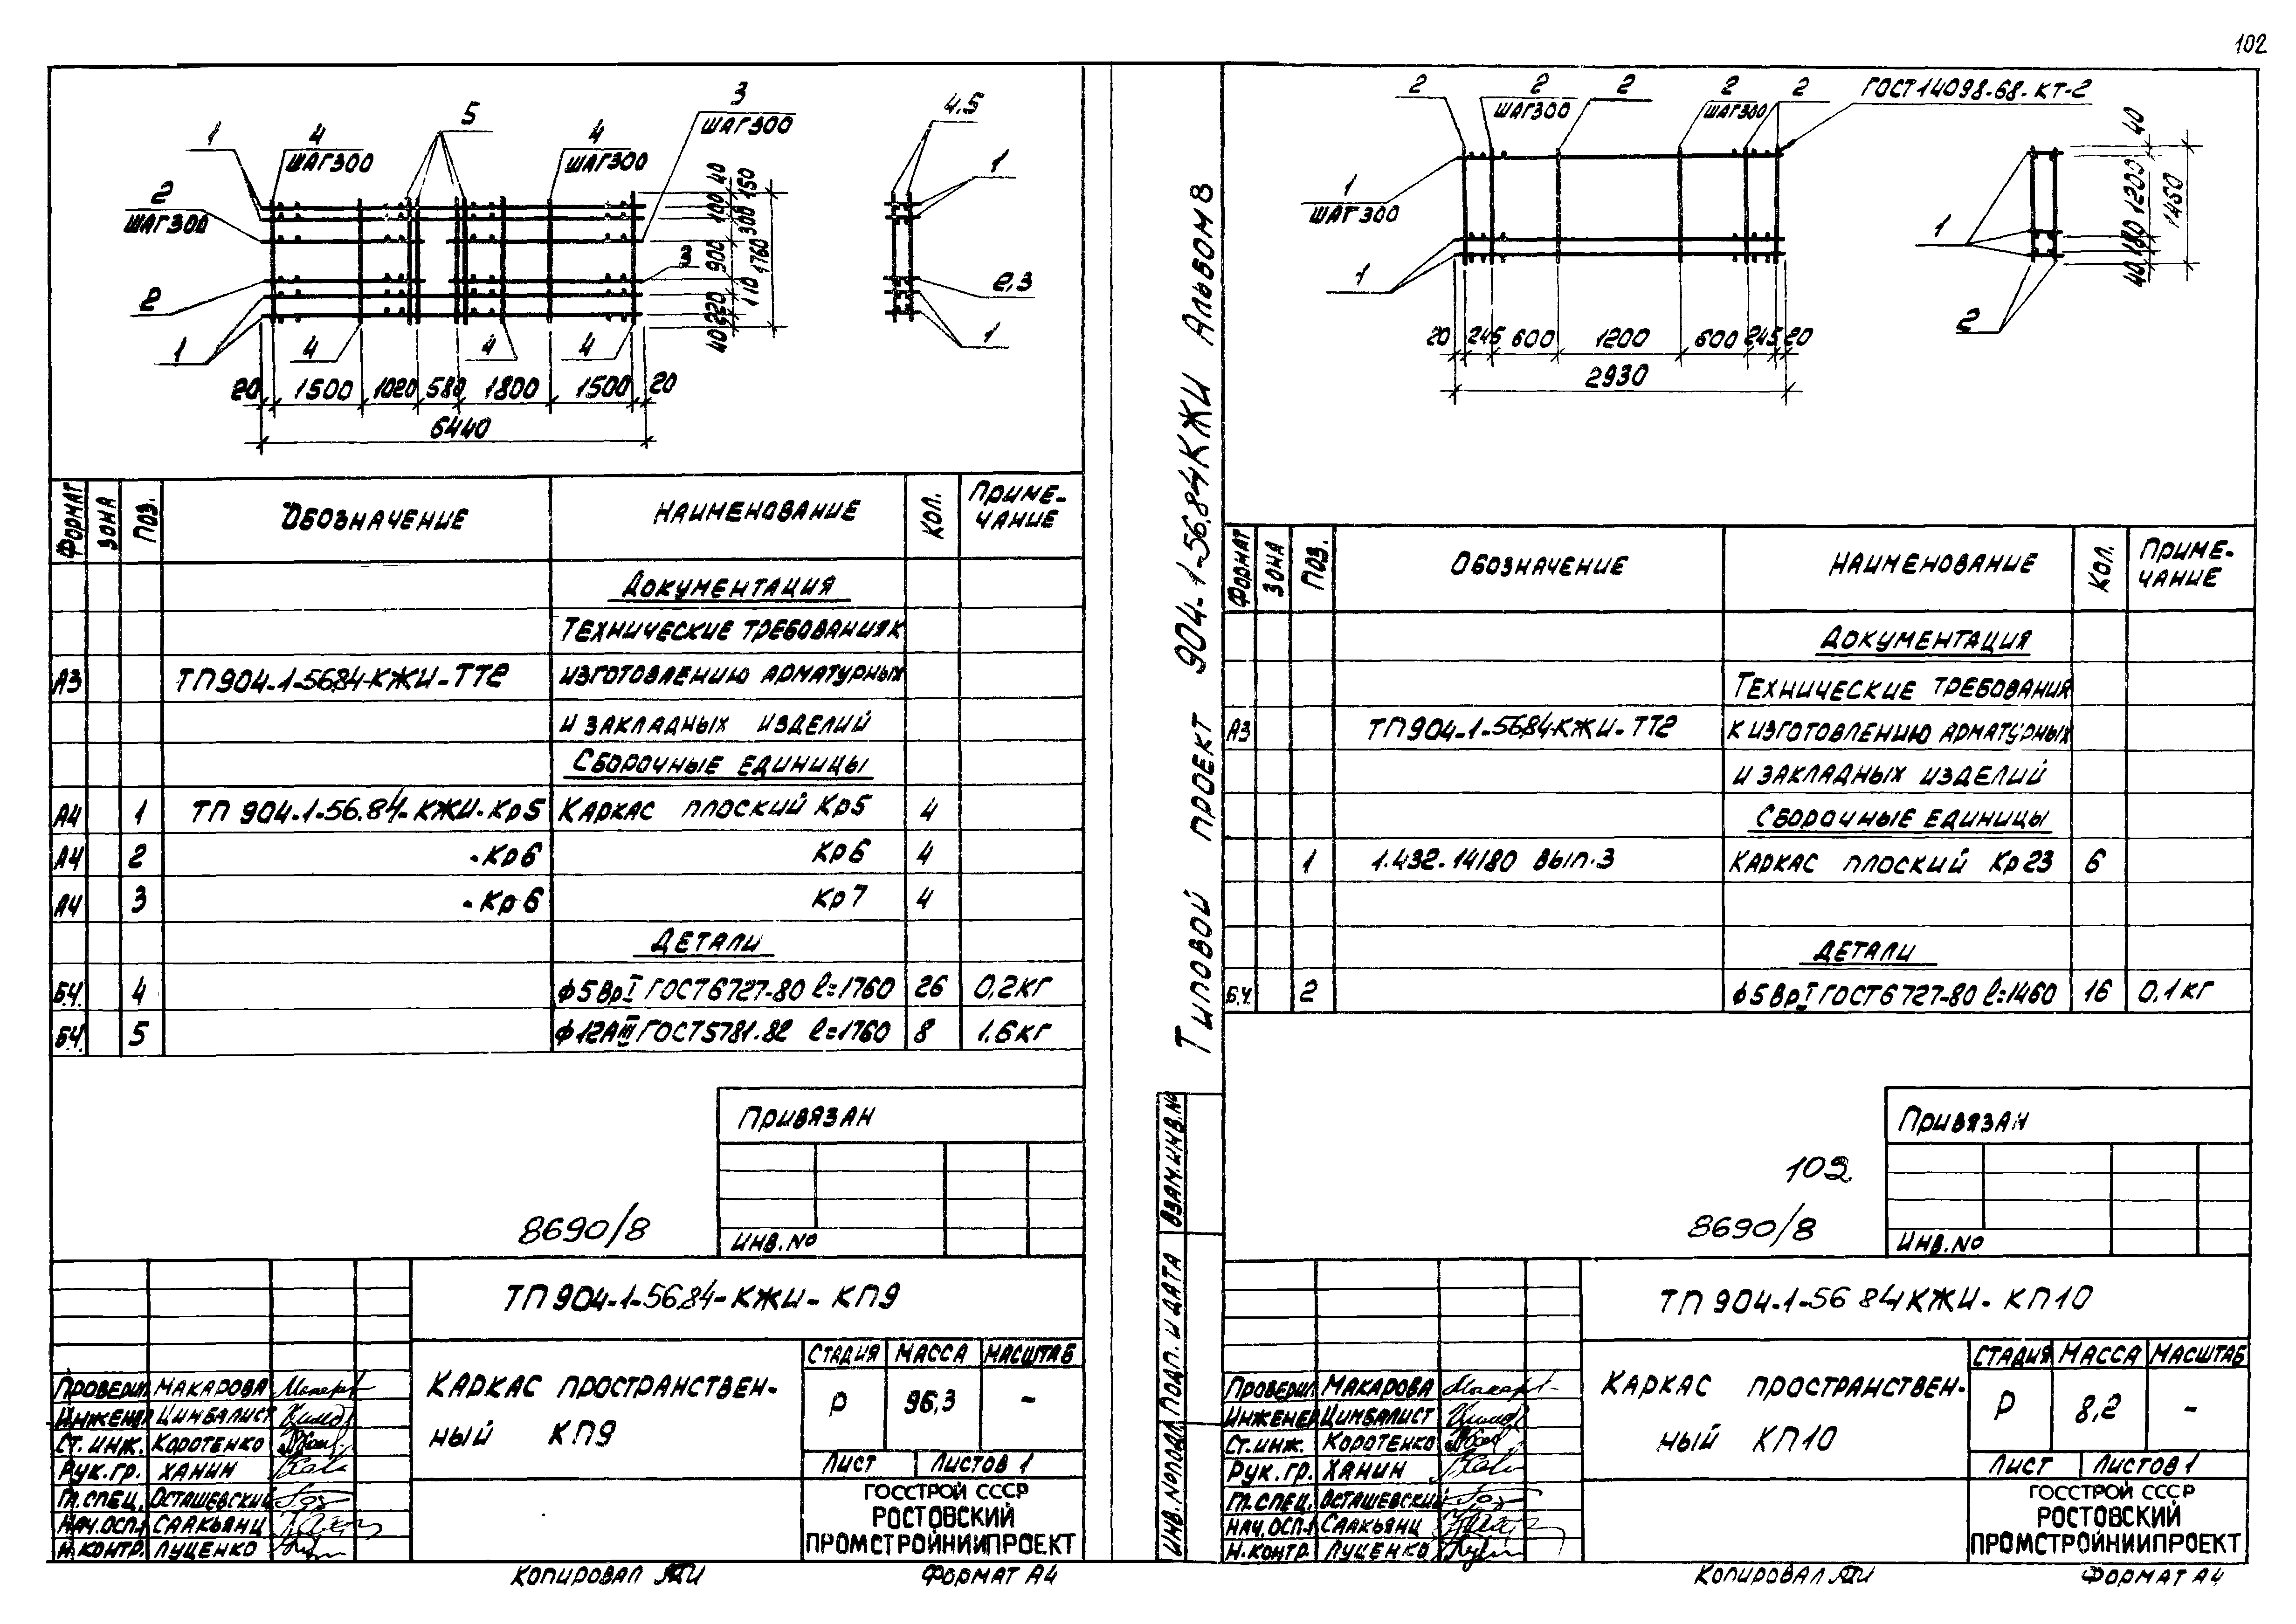 102
1
4
ШАГ 300
5
4
ШАГ 300
3
ШАГ 300
2
ШАГ 300
2
1
4
4
4
3
40 150
100 300
900 1760
110
220
40
20 1500 1020 580 1800 1500 20
6440
4.5
1
2,3
1
Формат Зона Поз. Обозначение Наименование Кол. Приме-
чание
Документация
Технические требования к
А3 ТП904-1-56.84-КЖИ-ТТ2 изготовлению арматурных
и закладных изделий
Сборочные единицы
А4 1 ТП 904-1-56.84-КЖИ-Кр5 Каркас плоский Кр5 4
А4 2 -Кр6 Кр6 4
А4 3 -Кр6 Кр7 4
Детали
Б.Ч. 4 ф5ВрI ГОСТ6727-80 ℓ=1760 26 0,2кг
Б.Ч. 5 ф12АIII ГОСТ5781-82 ℓ=1760 8 1.6кг
Привязан
Инв.№
8690/8
ТП904-1-56.84-КЖИ-КП9
Каркас пространствен-
ный КП9
Стадия Масса Масштаб
Р 96,3 -
Лист Листов 1
ГОССТРОЙ СССР
РОСТОВСКИЙ
ПРОМСТРОЙНИИПРОЕКТ
Проверил Макарова
Инженер Цимбалист
Ст. инж. Коротенко
Рук.гр. Ханин
Гл.спец. Осташевский
Нач.осп-1 Саакьянц
Н.контр. Луценко
Копировал
Формат А4
Типовой проект 904-1-56.84КЖИ Альбом 8
Инв.№подл. Подп. и дата Взам.инв.№
2
2
ШАГ 300
2
2
ШАГ 300
2
ГОСТ14098-68-КТ-2
1
ШАГ 300
1
20 245 600 1200 600 245 20
2930
1
2
40
1200
180
40
1460
Формат Зона Поз. Обозначение Наименование Кол. Приме-
чание
Документация
Технические требования
А3 ТП904-1-56.84-КЖИ-ТТ2 к изготовлению арматурных
и закладных изделий
Сборочные единицы
1 1.432-14/80 вып.3 Каркас плоский Кр23 6
Детали
Б.Ч. 2 ф5ВрI ГОСТ6727-80 ℓ=1460 16 0.1кг
Привязан
Инв.№
103
8690/8
ТП904-1-56 84КЖИ-КП10
Каркас пространствен-
ный КП10
Стадия Масса Масштаб
Р 8,2 -
Лист Листов 1
ГОССТРОЙ СССР
РОСТОВСКИЙ
ПРОМСТРОЙНИИПРОЕКТ
Проверил Макарова
Инженер Цимбалист
Ст.инж. Коротенко
Рук.гр. Ханин
Гл.спец. Осташевский
Нач.осп-1 Саакьянц
Н.контр. Луценко
Копировал
Формат А4